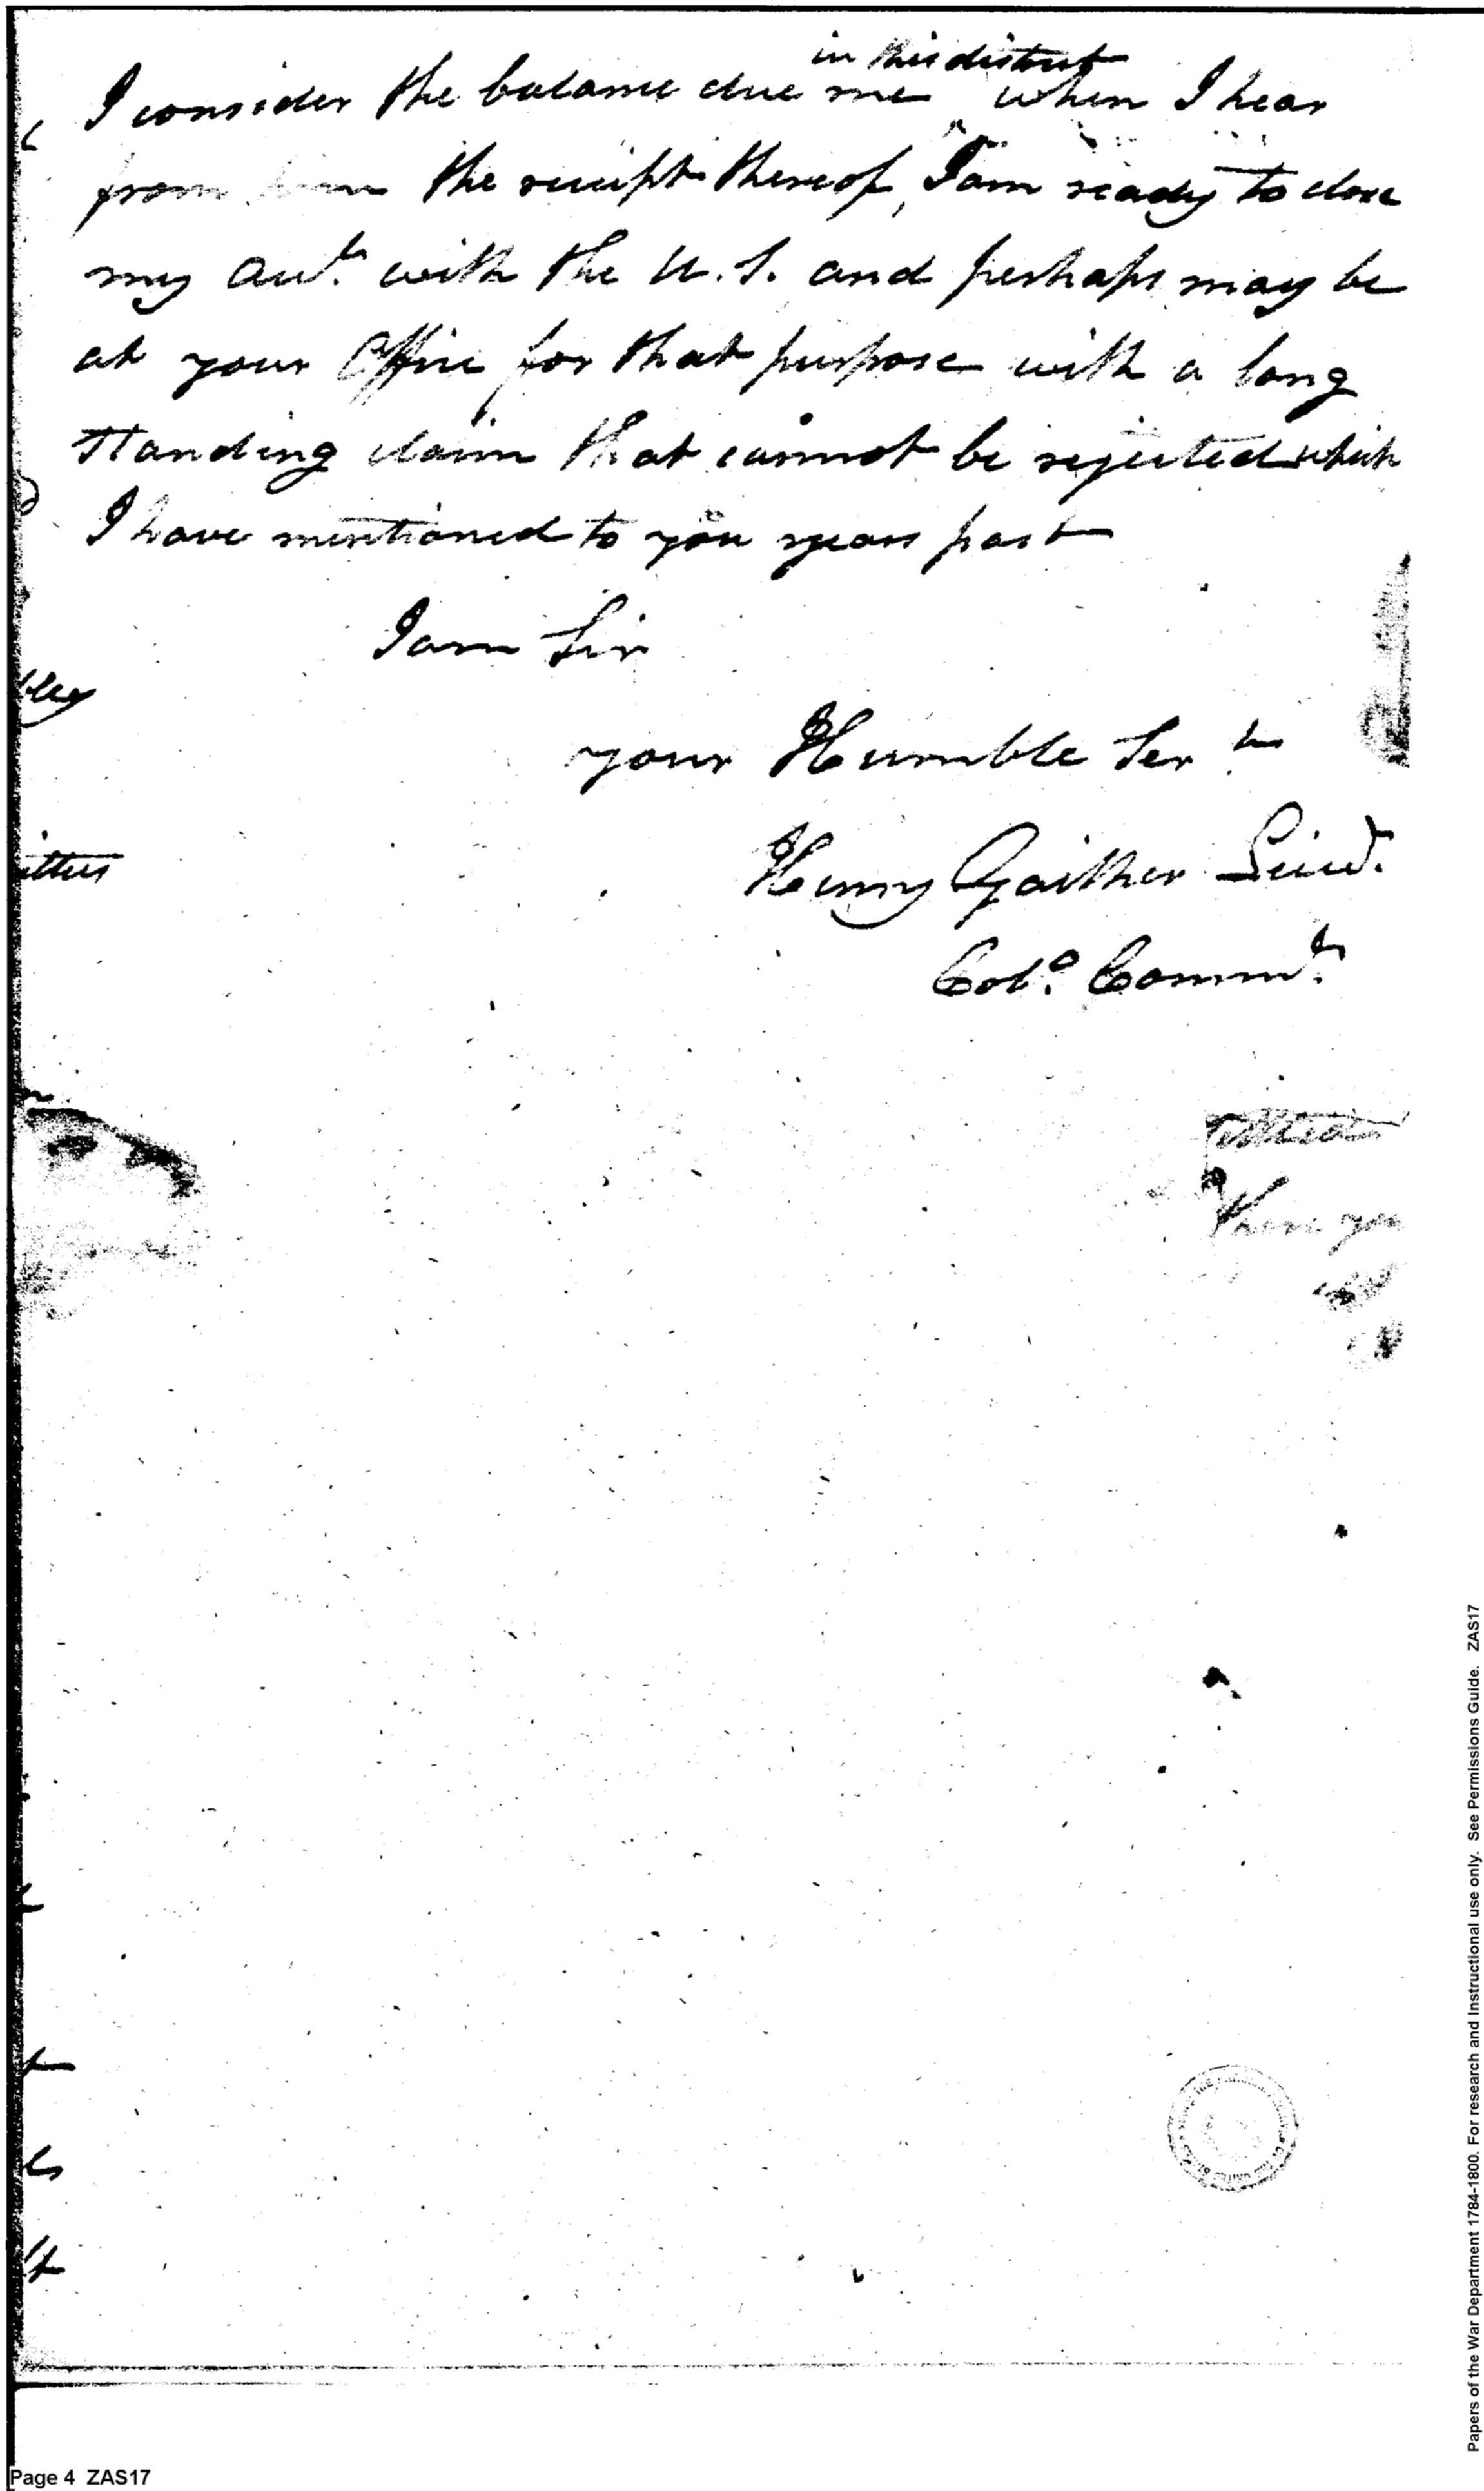 in this district
I consider the balance due me when I hear
from him the receipt thereof, I am ready to close
my acct. with the U.S. and perhaps may be
at your Office for that purpose with a long
standing claim that cannot be rejected which
I have mentioned to you years past
I am Sir
your Humble Servt
Henry Gaither Lieut.
Colo. Commdt.
Papers of the War Department 1784-1800. For research and Instructional use only. See Permissions Guide. ZAS17
Page 4 ZAS17